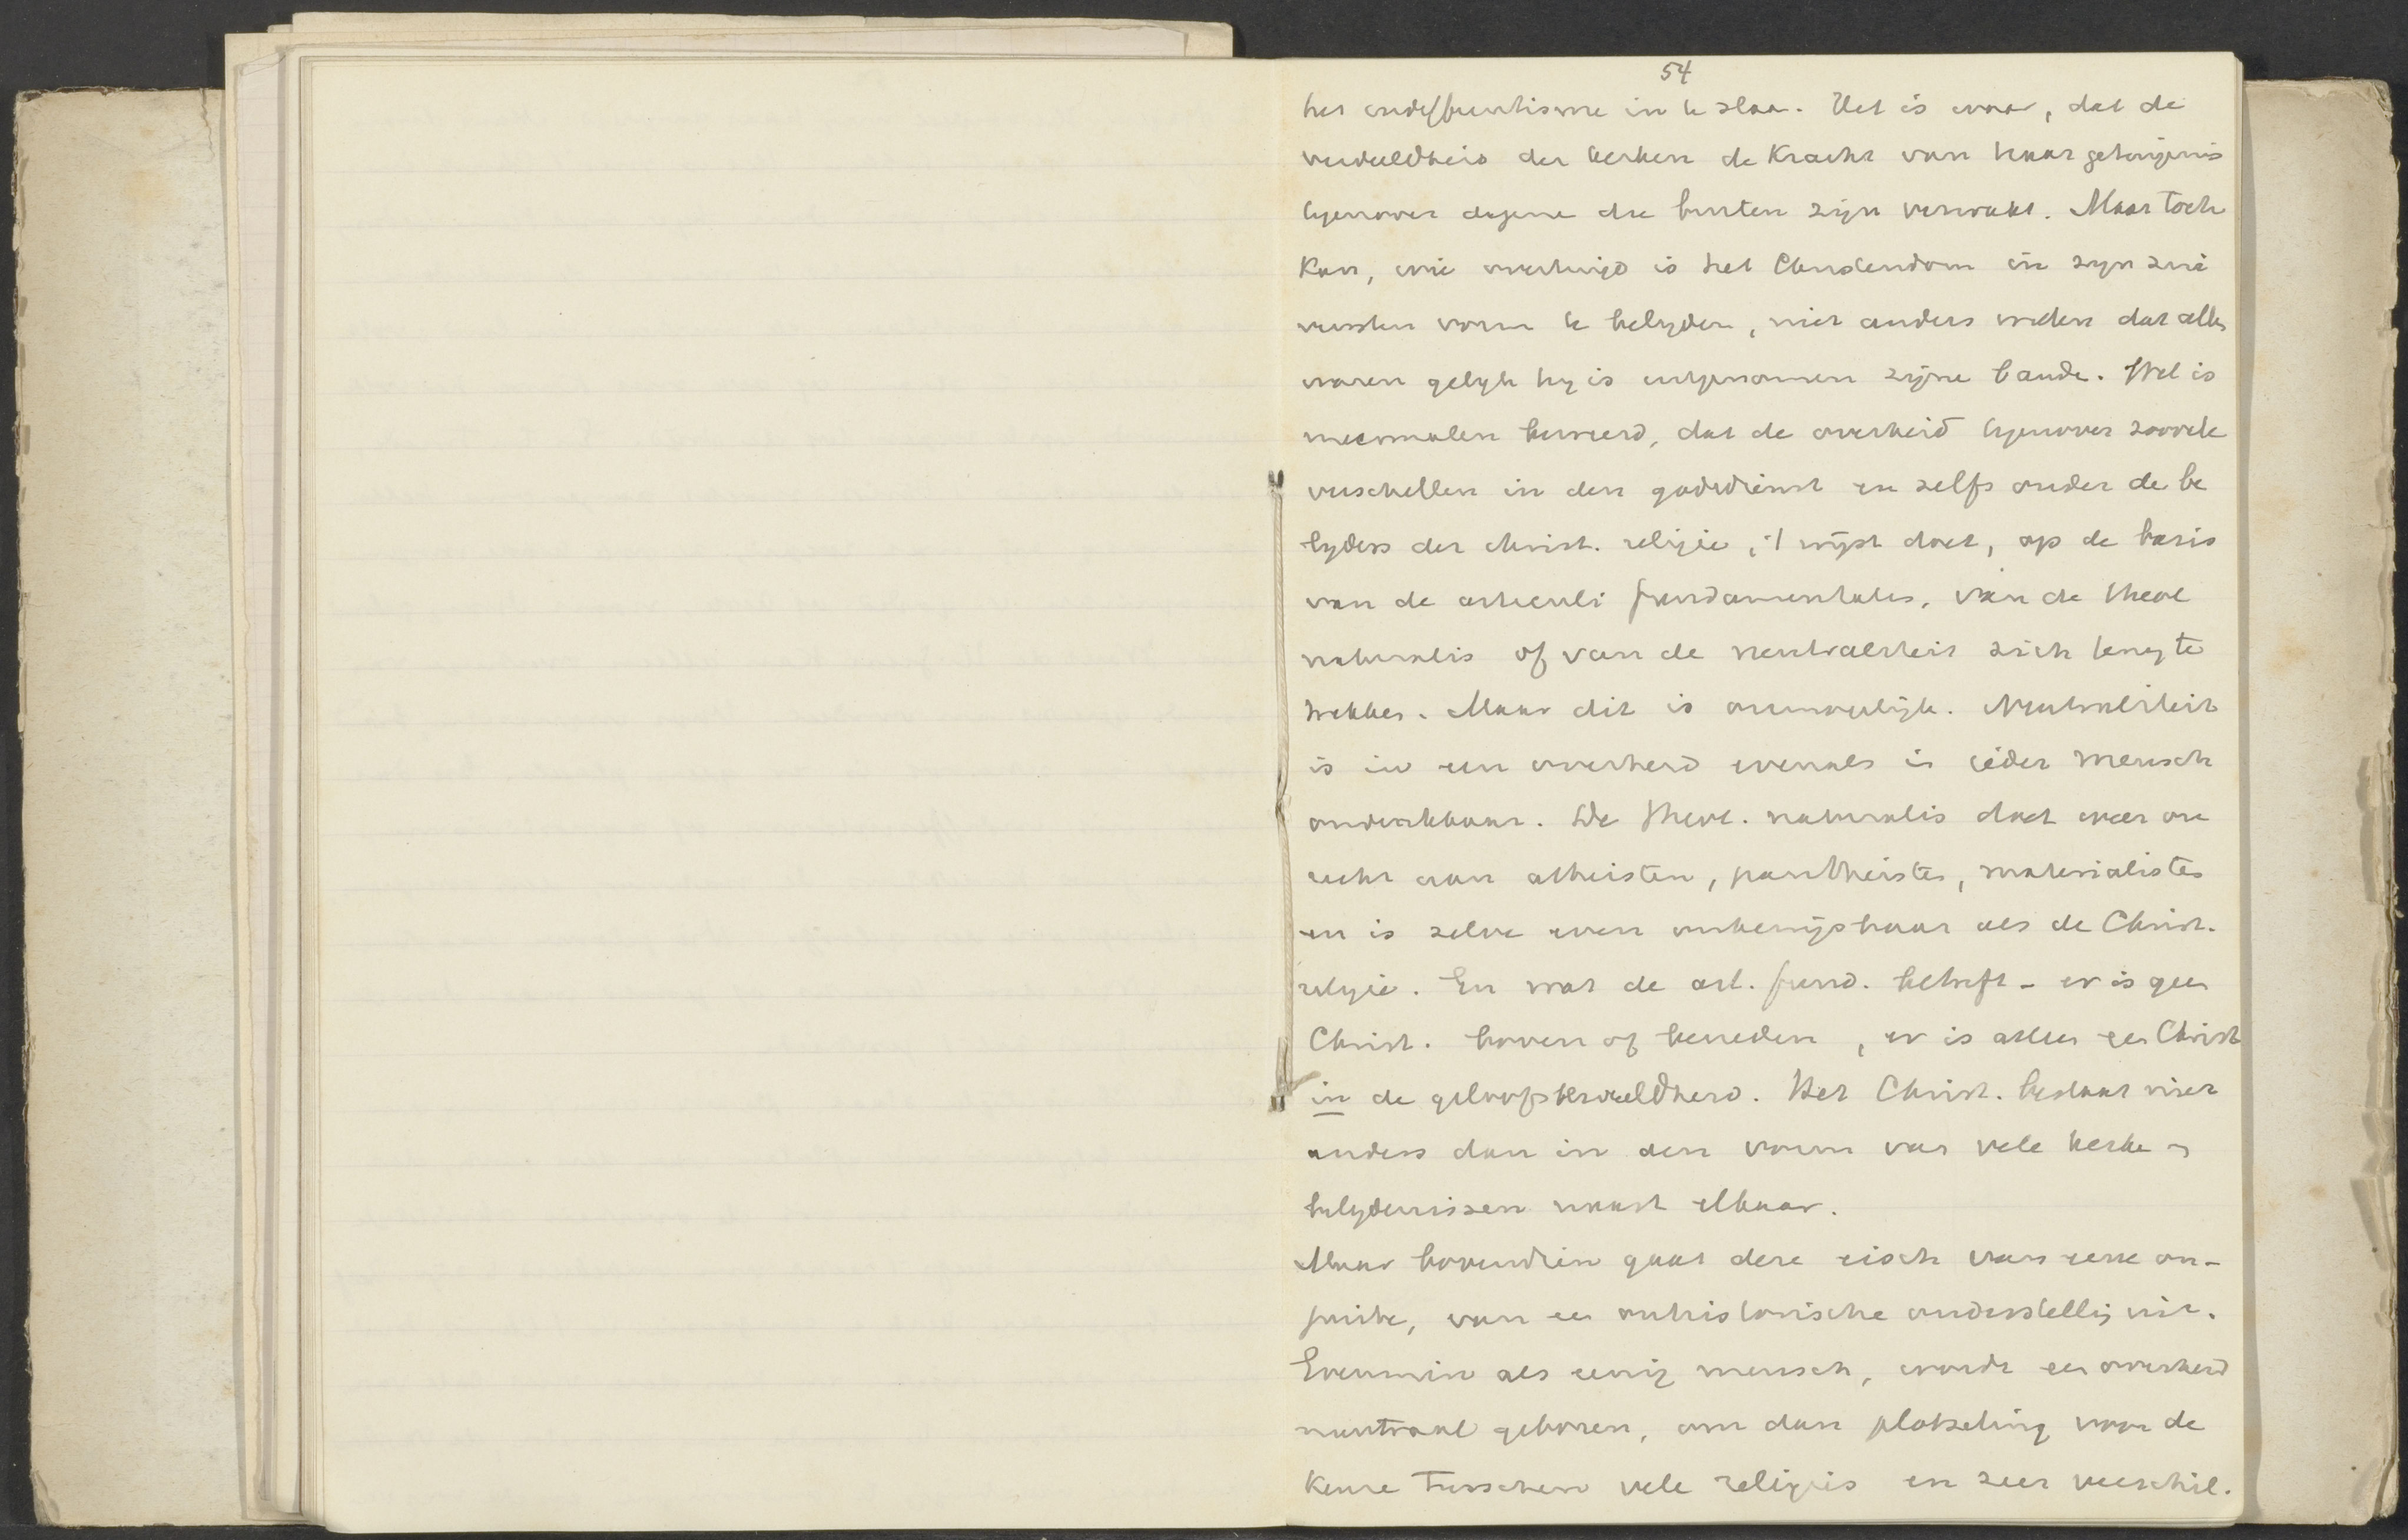 54
het indifferentisme in te slaan. Het is waar, dat de
verdeeldheid der kerken de kracht van haar getuigenis
tegenover degene die buiten zijn verzwakt. Maar toch
kan, wie overtuigd is het Christendom in zijn zui
versten vorm te belyden, niet anders willen dat allen
waren gelyk hy is uitgenomen zijne bande. Wel is
meermalen beweerd, dat de overheid tegenover zoovele
verschillen in den godsdienst en zelfs onder de be
lyders der christ. religie, 't wijst doet, op de basis
van de articuli fundamentales, van de theol
naturalis of van de neutraliteit zich terug te
trekken. Maar dit is onmogelijk. Neutraliteit
is in een overheid evenals in ieder mensch
ondenkbaar. De theol. naturalis doet weer on
recht aan atheisten, pantheisten, materialisten
en is zelve even onbewijsbaar als de Christ.
religie. En wat de art. fund. betreft - er is geen
Christ. boven of beneden, er is alleen een Christ
in de geloofsverdeeldheid. Het Christ. bestaat niet
anders dan in den vorm van vele kerken en
belydenissen naast elkaar.
Maar bovendien gaat deze eisch van eene on-
juiste, van een onhistorische onderstelling uit.
Evenmin als eenig mensch, wordt een overheid
neutraal geboren, om dan plotseling voor de
keuze tusschen vele religies en zeer verschil.